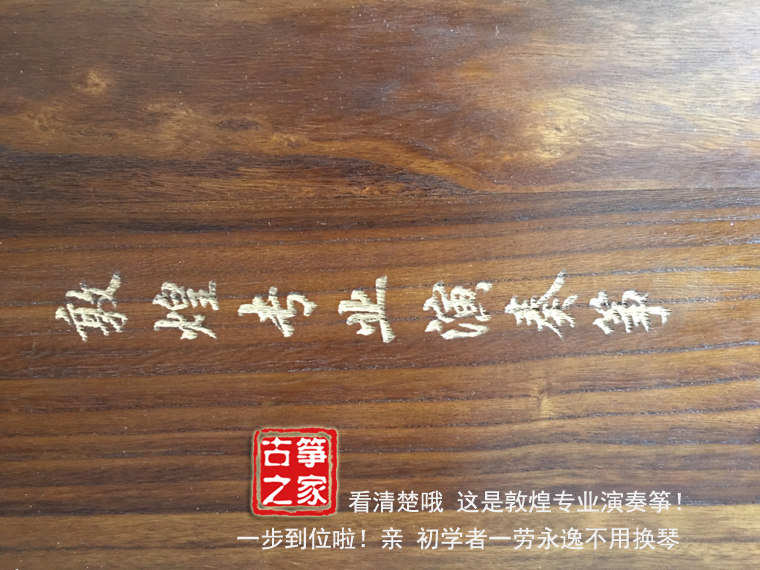 敦煌专业演奏筝
古筝
之家
看清楚哦 这是敦煌专业演奏筝！
一步到位啦！亲 初学者一劳永逸不用换琴